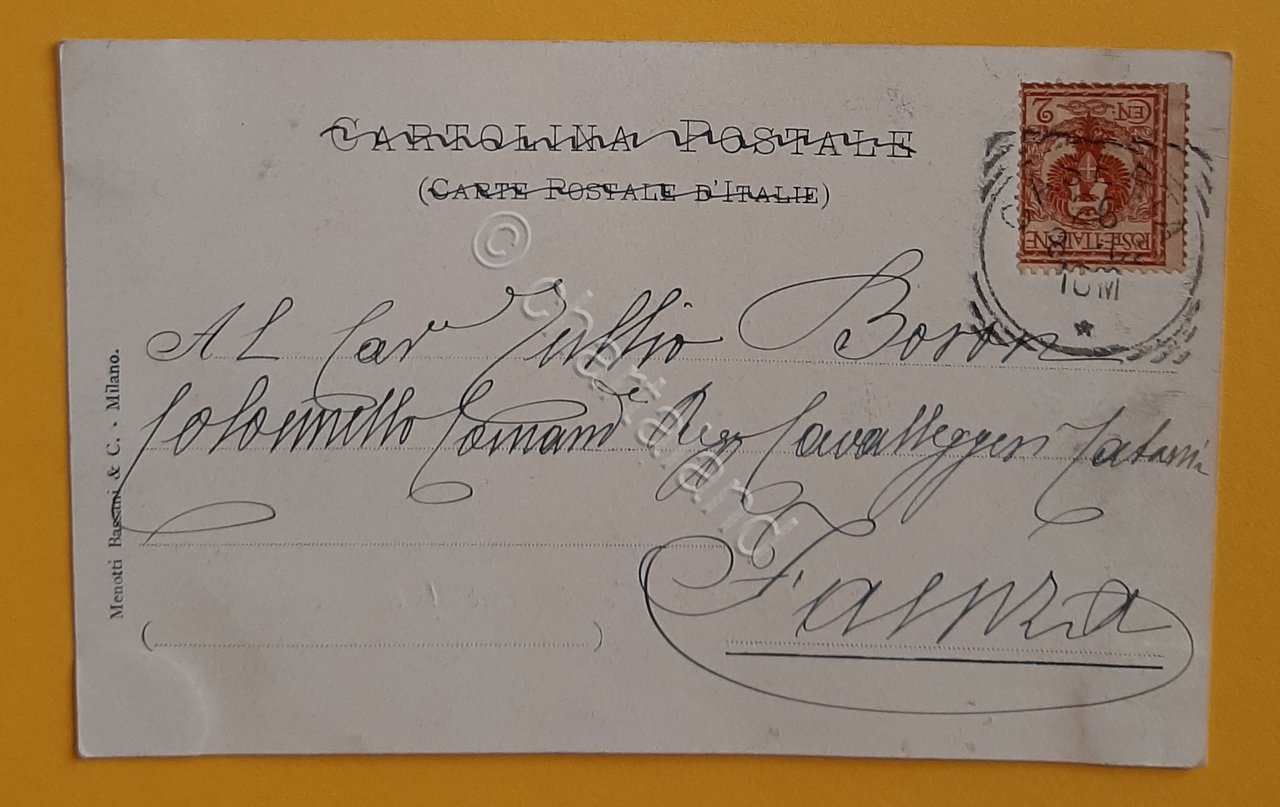 CARTOLINA POSTALE
(CARTE POSTALE D'ITALIE)
CEN 2
POSTE ITALIANE
10M
Al Cavre Tullio Boron
Colonnello Comand te Regg Cavalleggeri Catania
Faenza
Menotti Bassani & C. - Milano.
© chartaland